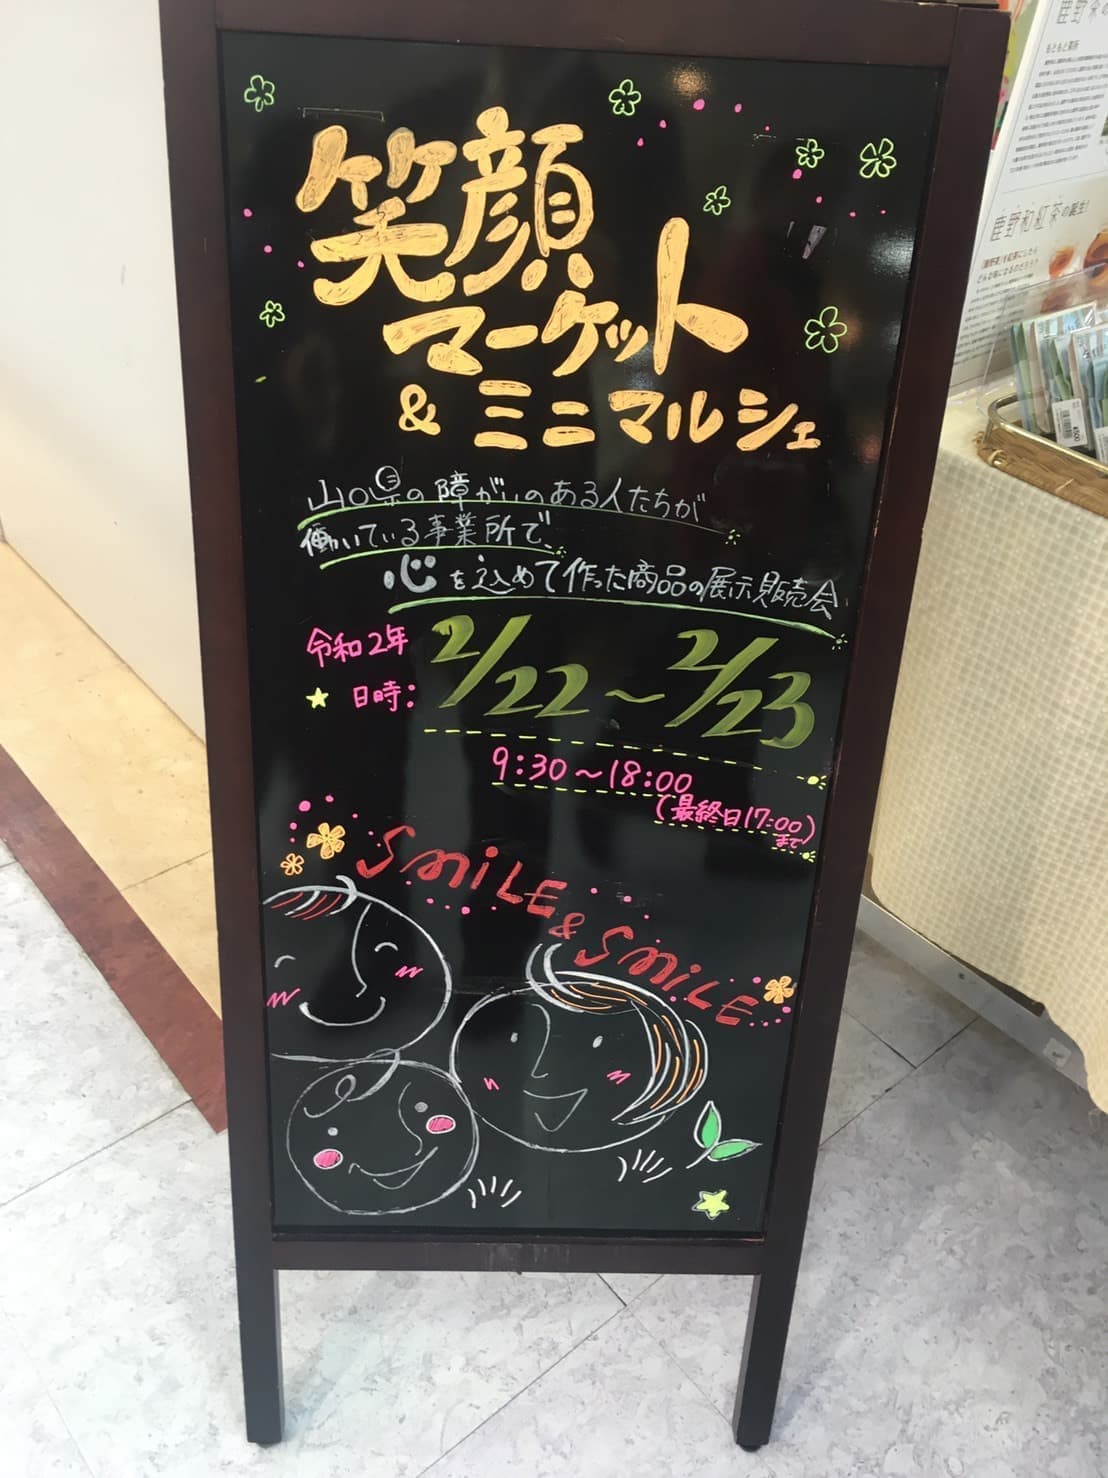 笑顔
マーケット
& ミニマルシェ
山口県の障がいのある人たちが
働いている事業所で、
心を込めて作った商品の展示販売会
令和2年
日時:
2/22～2/23
9:30～18:00
(最終日17:00)
まで
SMiLE & SMiLE
鹿野茶の
もともと薬所
鹿野和紅茶の誕生!